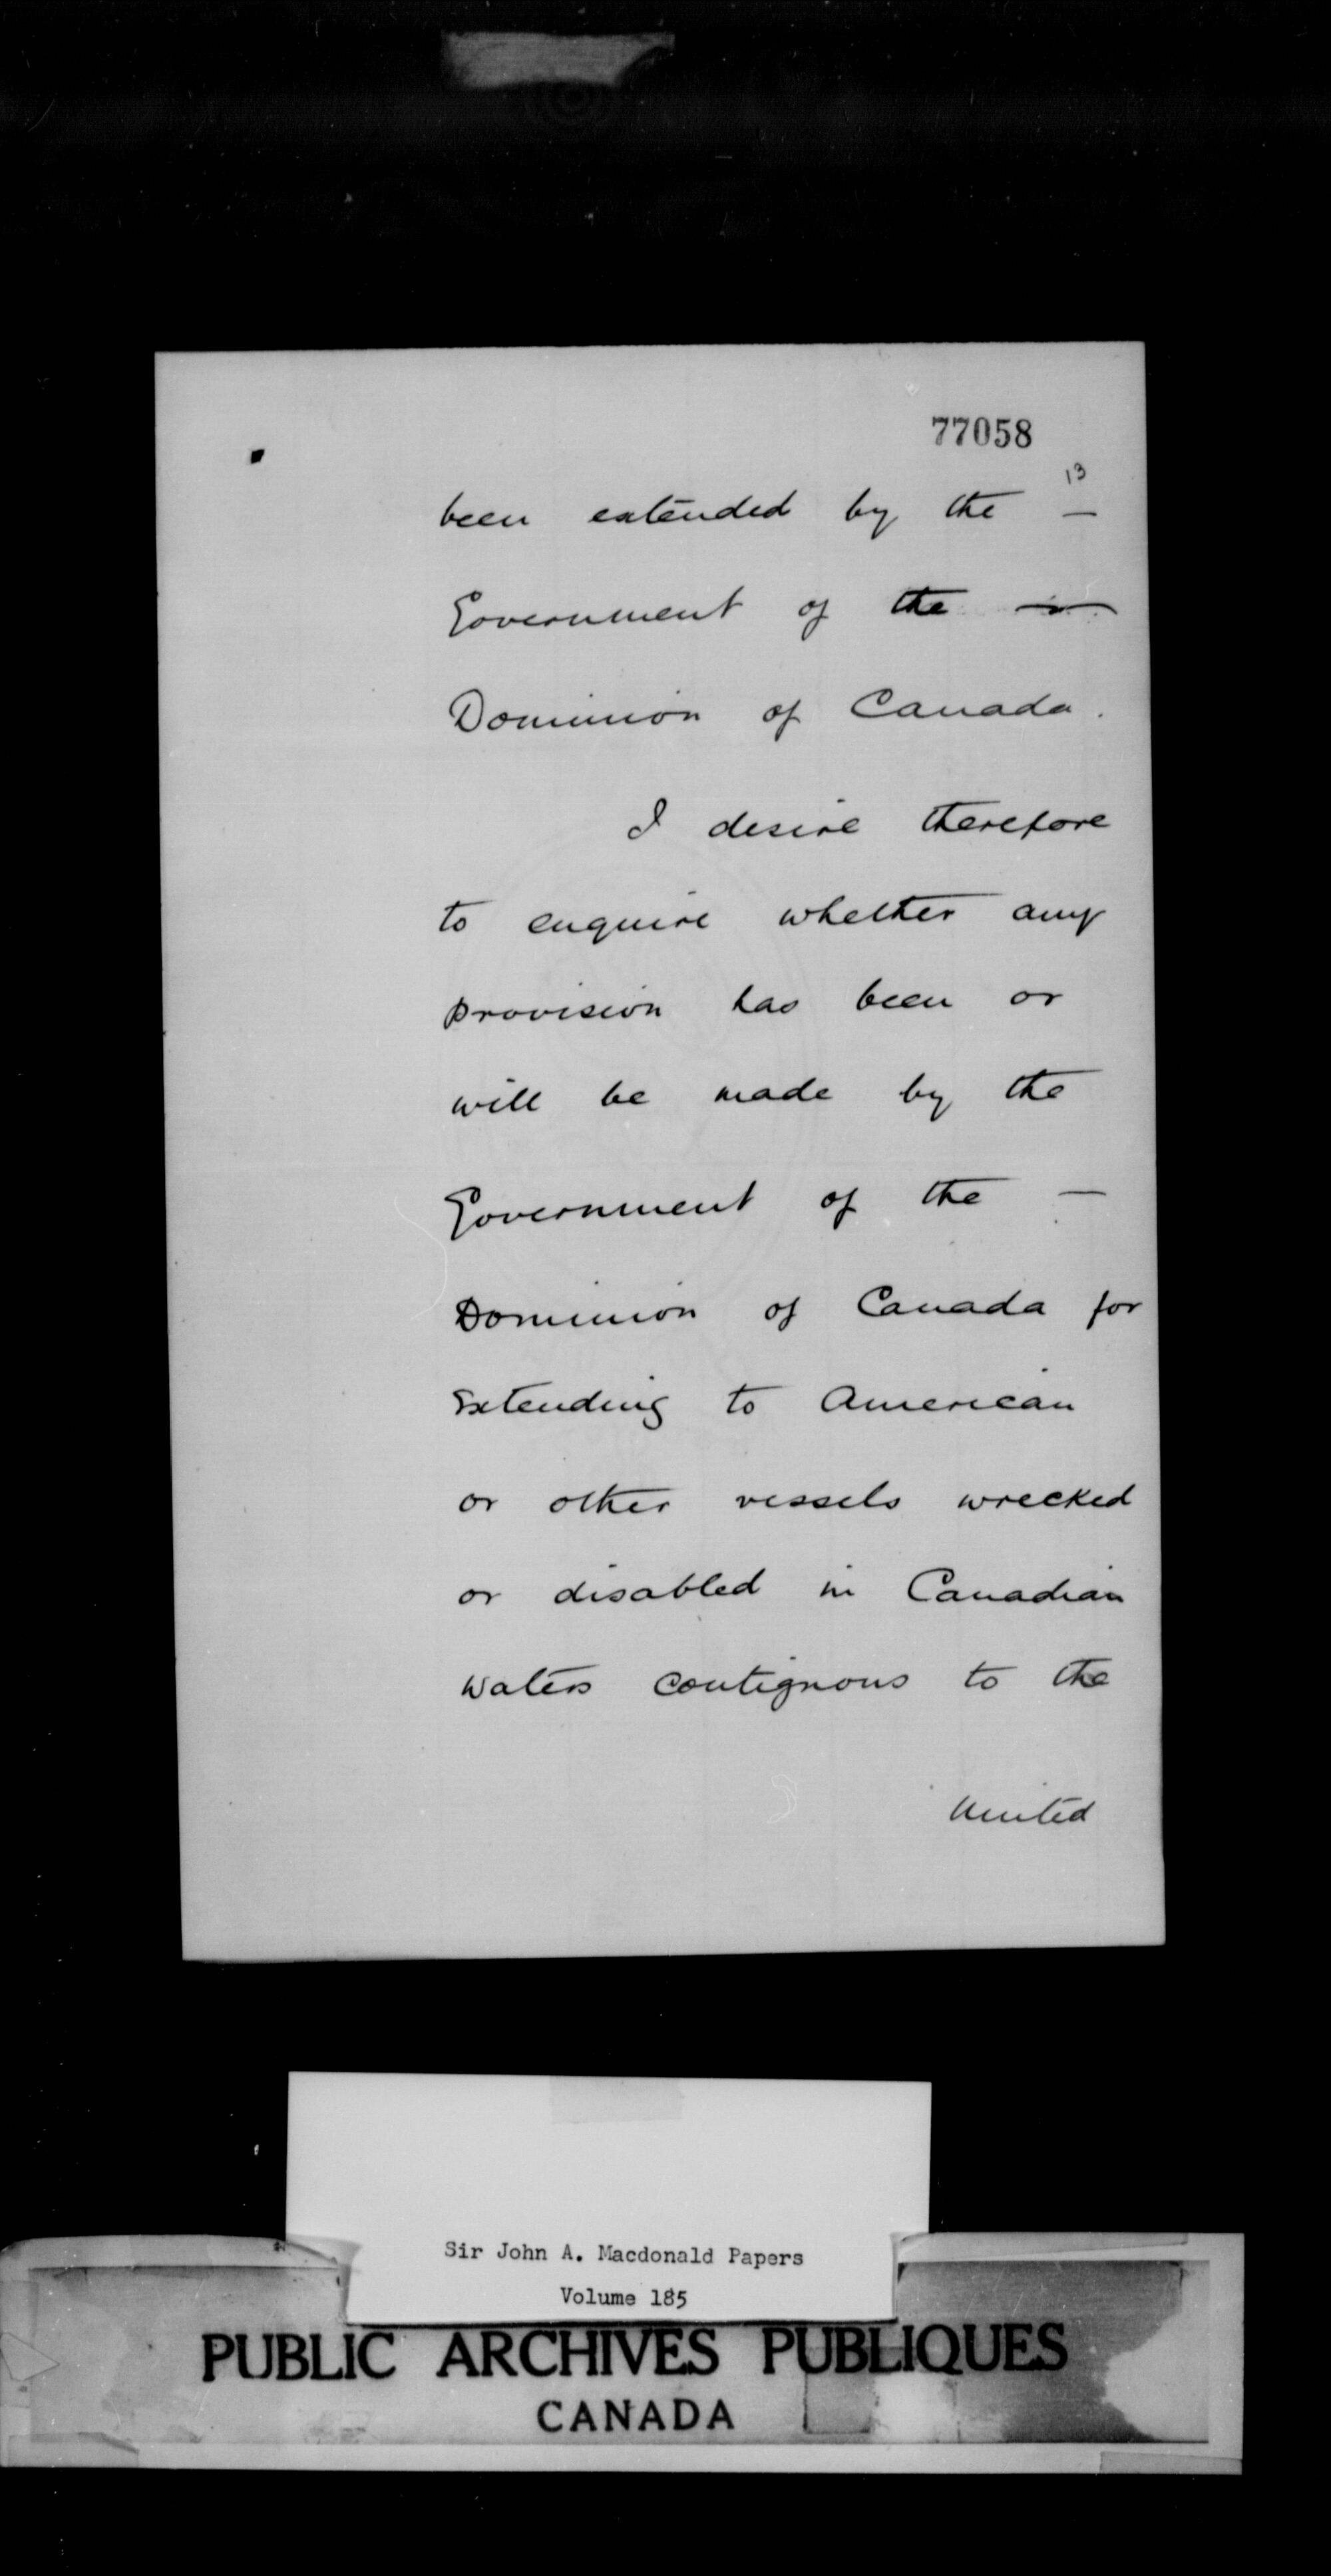 77058
13
been extended by the —
Government of the —
Dominion of Canada.
I desire therefore
to enquire whether any
provision has been or
will be made by the
Government of the —
Dominion of Canada for
Extending to American
or other vessels wrecked
or disabled in Canadian
waters contiguous to the
United
Sir John A. Macdonald Papers
Volume 185
PUBLIC ARCHIVES PUBLIQUES
CANADA